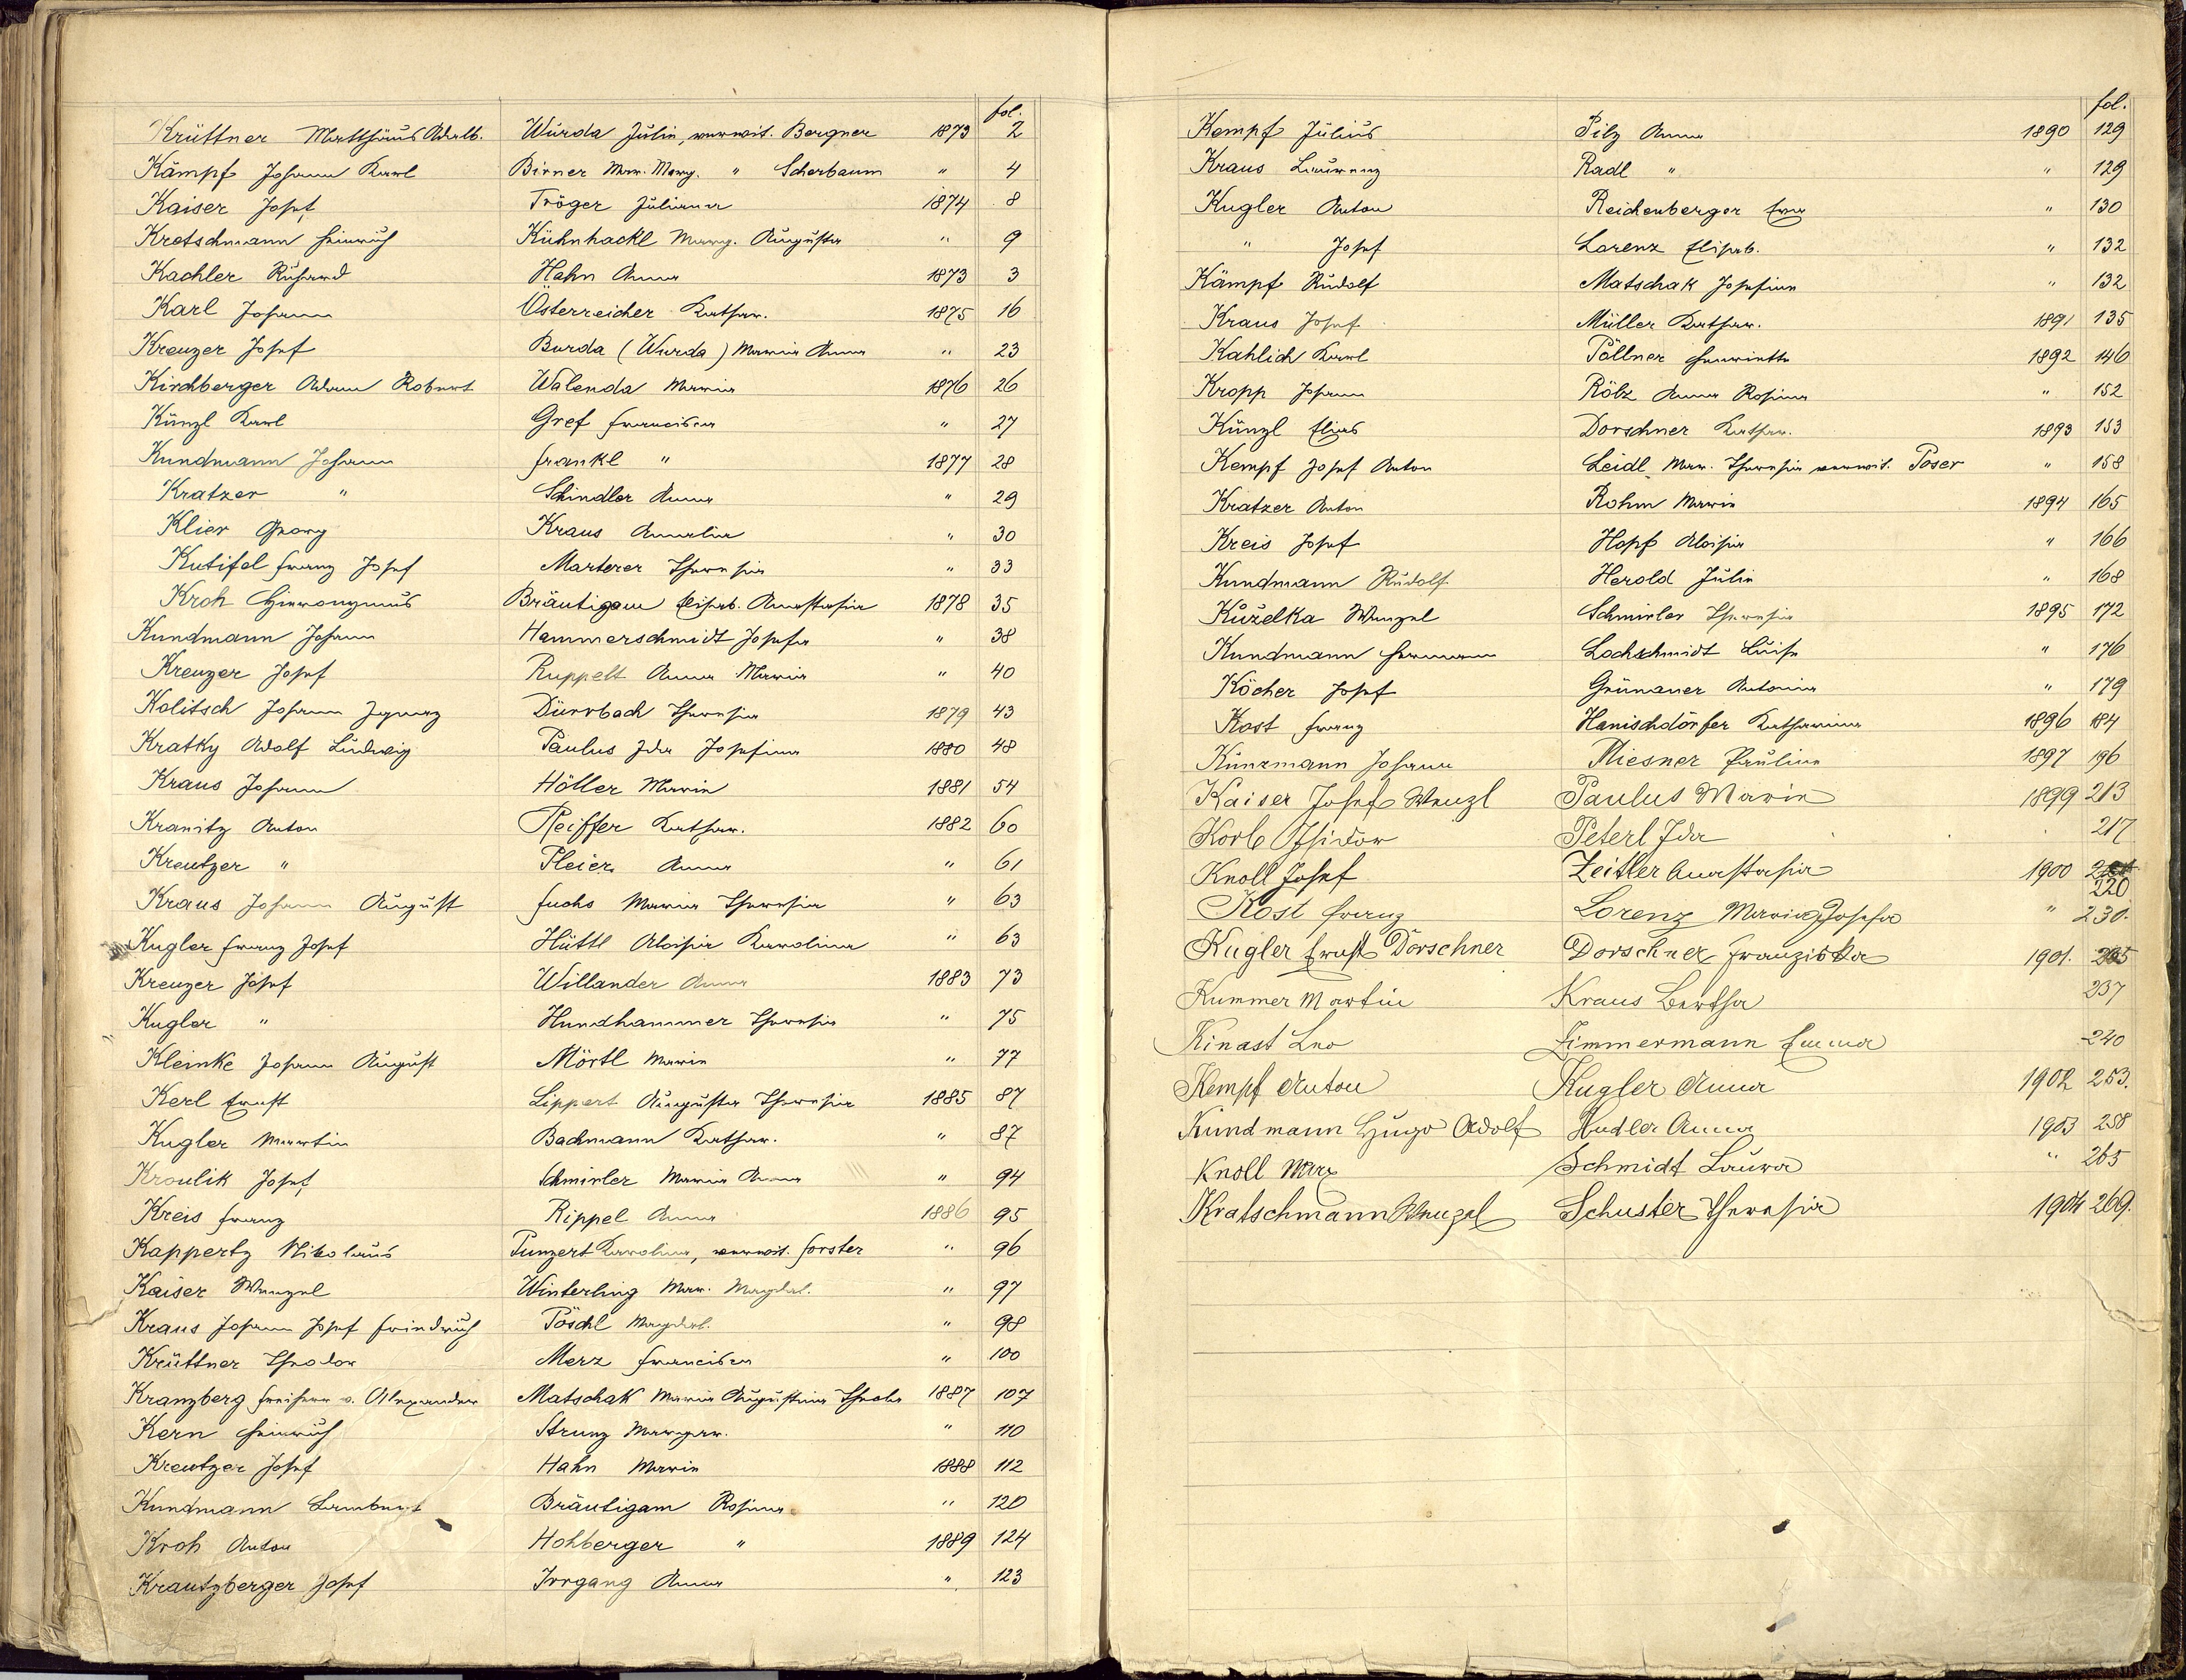 fol.
Krüttner Matthäus Adalb. Wurda Julie, verwit. Bergner 1873 2
Kämpf Johann Karl Birner Mar. Marg. " Scherbaum " 4
Kaiser Josef Tröger Juliana 1874 8
Kretschmann Heinrich Kühnhackl Marg. Augusta " 9
Kachler Richard Hahn Anna 1873 3
Karl Johann Österreicher Kathar. 1875 16
Kreuzer Josef Burda (Wurda) Maria Anna " 23
Kirchberger Adam Robert Walenda Maria 1876 26
Künzl Karl Gref Francisca " 27
Kundmann Johann Frankl " 1877 28
Kratzer " Schindler Anna " 29
Klier Georg Kraus Amalia " 30
Kutifel Franz Josef Marterer Theresia " 33
Kroh Hieronymus Bräutigam Elisab. Anastasia 1878 35
Kundmann Johann Hammerschmidt Josefa " 38
Kreuzer Josef Ruppelt Anna Maria " 40
Kolitsch Johann Ignaz Dürrbach Theresia 1879 43
Kratky Adolf Ludwig Paulus Ida Josefina 1880 48
Kraus Johann Höller Marie 1881 54
Kranitz Anton Pfeiffer Kathar. 1882 60
Kreutzer " Pleier Anna " 61
Kraus Johann August Fuchs Maria Theresia " 63
Kugler Franz Josef Hüttl Aloisia Karolina " 63
Kreuzer Josef Willander Anna 1883 73
Kugler " Hundhammer Theresia " 75
Kleinke Johann August Mörtl Marie " 77
Kerl Ernst Lippert Augusta Theresia 1885 87
Kugler Martin Bachmann Kathar. " 87
Kroulik Josef Schmirler Maria Anna " 94
Kreis Franz Rippel Anna 1886 95
Kappertz Nikolaus Punzert Karolina, verwit. Forster " 96
Kaiser Wenzel Winterling Mar. Magdal. " 97
Kraus Johann Josef Friedrich Pöschl Magdal. " 98
Krüttner Theodor Merz Francisca " 100
Kranzberg Freiherr v. Alexander Matschak Maria Augustina Thecla 1887 107
Kern Heinrich Strunz Margar. " 110
Kreutzer Josef Hahn Marie 1888 112
Kundmann Lambert Bräutigam Rosina " 120
Kroh Anton Hohberger " 1889 124
Krautzberger Josef Irrgang Anna " 123
fol.
Kempf Julius Pilz Anna 1890 129
Kraus Laurenz Radl " " 129
Kugler Anton Reichenberger Eva " 130
" Josef Lorenz Elisab. " 132
Kämpf Rudolf Matschak Josefine " 132
Kraus Josef Müller Kathar. 1891 135
Kahlich Karl Pöllner Henriette 1892 146
Kropp Johann Rölz Anna Rosina " 152
Künzl Elias Dorschner Kathar. 1893 153
Kempf Josef Anton Leidl Mar. Theresia verwit. Poser " 158
Kratzer Anton Rohm Marie 1894 165
Kreis Josef Hopf Aloisia " 166
Kundmann Rudolf Herold Julie " 168
Kuželka Wenzel Schmirler Theresia 1895 172
Kundmann Hermann Lochschmidt Luise " 176
Köcher Josef Grünauer Antonia " 179
Kost Franz Hanischdörfer Katharina 1896 184
Künzmann Johann Miesner Pauline 1897 196
Kaiser Josef Wenzl Paulus Marie 1899 213
Korb Isidor Peterl Ida 217
Knoll Josef Zeitler Anastasia 1900
220
Kost Franz Lorenz Maria Josefa " 230.
Kugler Ernst Dorschner Dorschner Franziska 1901. 235
Kummer Martin Kraus Bertha 237
Kinast Leo Zimmermann Emma 240
Kempf Anton Kugler Anna 1902 253.
Kundmann Hugo Adolf Hudler Anna 1903 258
Knoll Max Schmidt Laura " 265
Kratschmann Wenzel Schuster Theresia 1904 269.